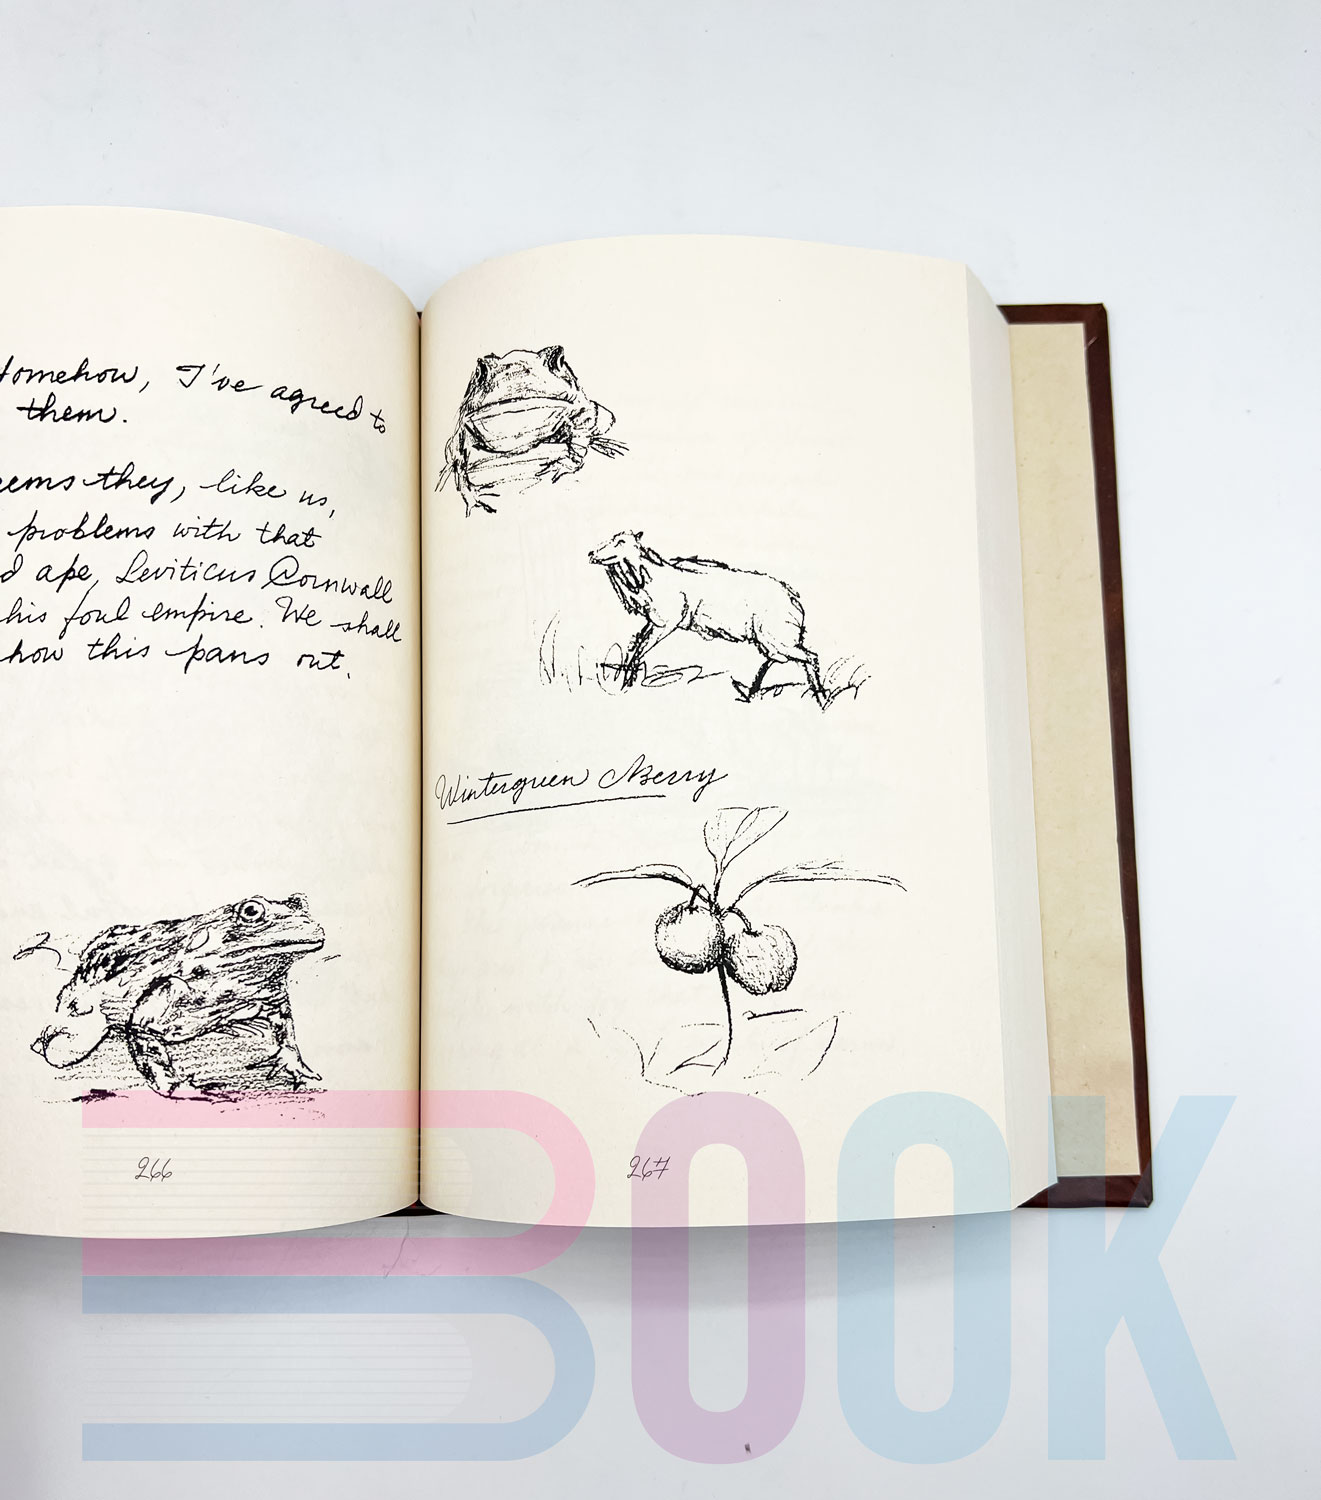 Somehow, I've agreed to
them.
seems they, like us,
problems with that
ape, Leviticus Cornwall
his foul empire. We shall
how this pans out.
266
Wintergreen Berry
267
BOOK